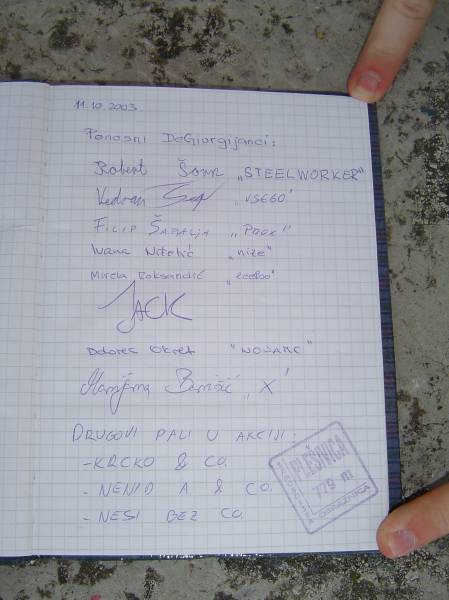 11.10.2003.
Ponosni DeGiorgijanci:
Robert "STEELWORKER"
Vedran "VSEGO"
FILIP ŠABALJA "PROX"
Ivana "niže"
Mirela Roksandić
JACK
Dolores Okret "NOVAK"
Marijana "X"
DRUGOVI PALI U AKCIJI:
- KRCKO & CO.
- NENID A. & CO.
- NESI BEZ CO.
PLEŠIVICA
779 m